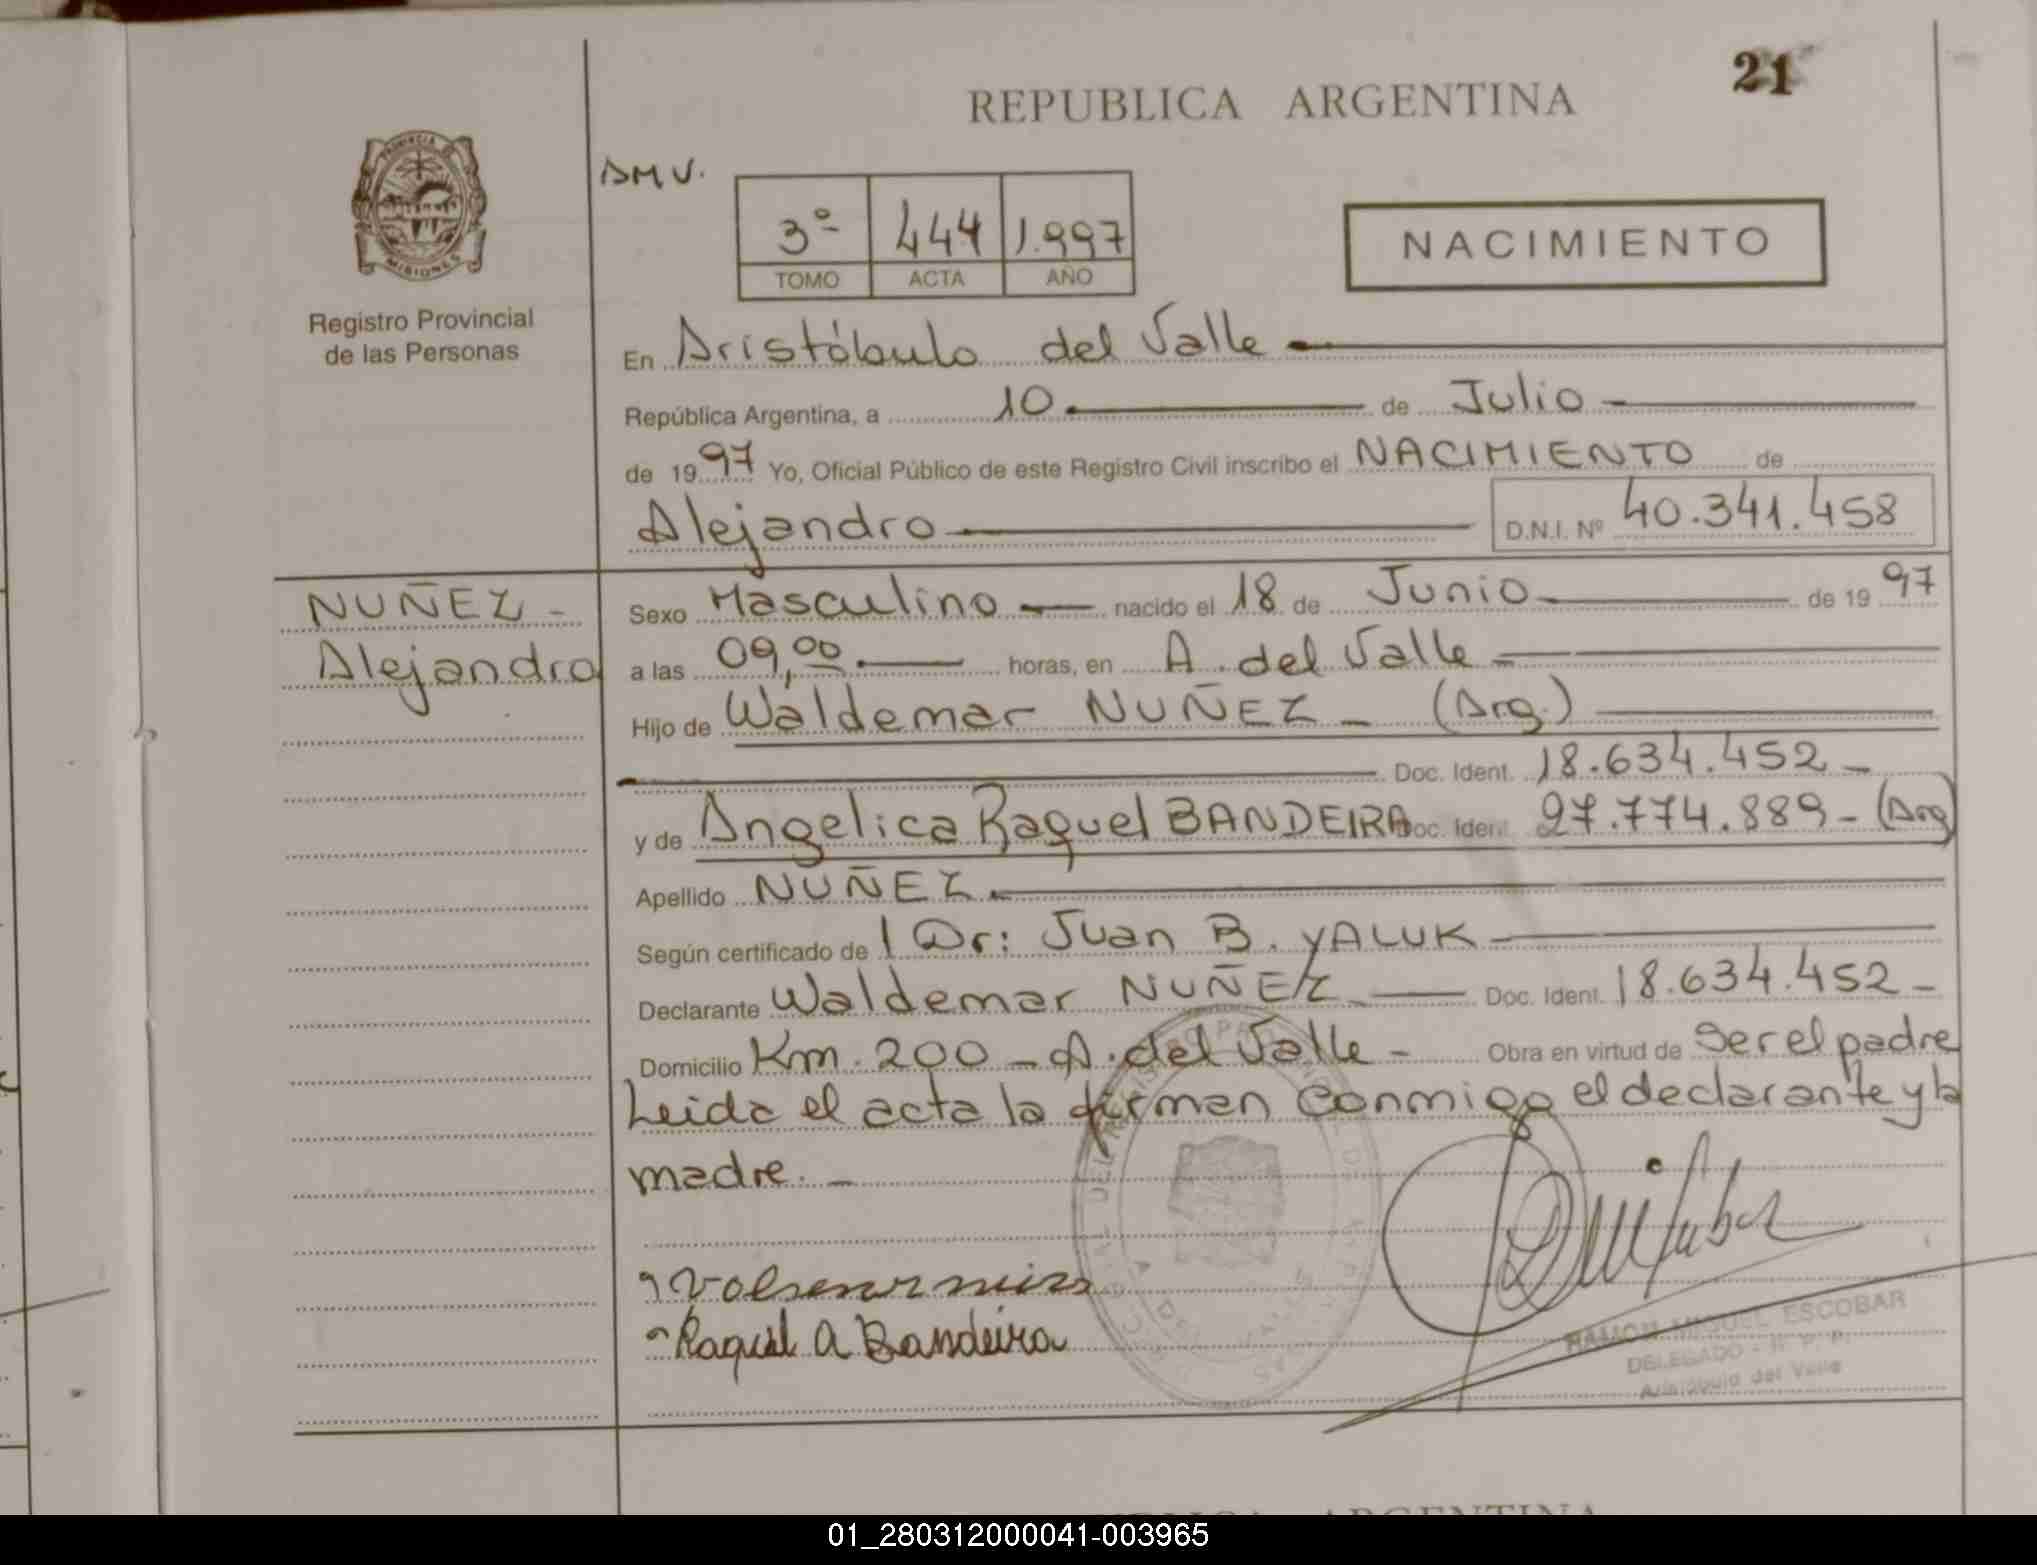 21
REPUBLICA ARGENTINA
PROVINCIA DE
MISIONES
Registro Provincial
de las Personas
AMV.
3º 444 1.997
TOMO ACTA AÑO
NACIMIENTO
En Aristóbulo del Valle
República Argentina, a 10 de Julio
de 1997 Yo, Oficial Público de este Registro Civil inscribo el NACIMIENTO de
Alejandro D.N.I. Nº 40.341.458
NUÑEZ -
Alejandro
Sexo Masculino nacido el 18 de Junio de 1997
a las 09,00 horas, en A. del Valle
Hijo de Waldemar NUÑEZ - (Arg.)
Doc. Ident. 18.634.452 -
y de Angelica Raquel BANDEIRA Doc. Ident. 27.774.889 - (Arg)
Apellido NUÑEZ
Según certificado de / Dr: Juan B. YALUK
Declarante Waldemar NUÑEZ Doc. Ident. 18.634.452 -
Domicilio Km. 200 - A. del Valle - Obra en virtud de Ser el padre
Leida el acta la firman conmigo el declarante y la
madre. -
Raquel A Bandeira
RAMON MIGUEL ESCOBAR
DELEGADO - R. P. P.
Aristóbulo del Valle
REPUBLICA ARGENTINA
01_280312000041-003965